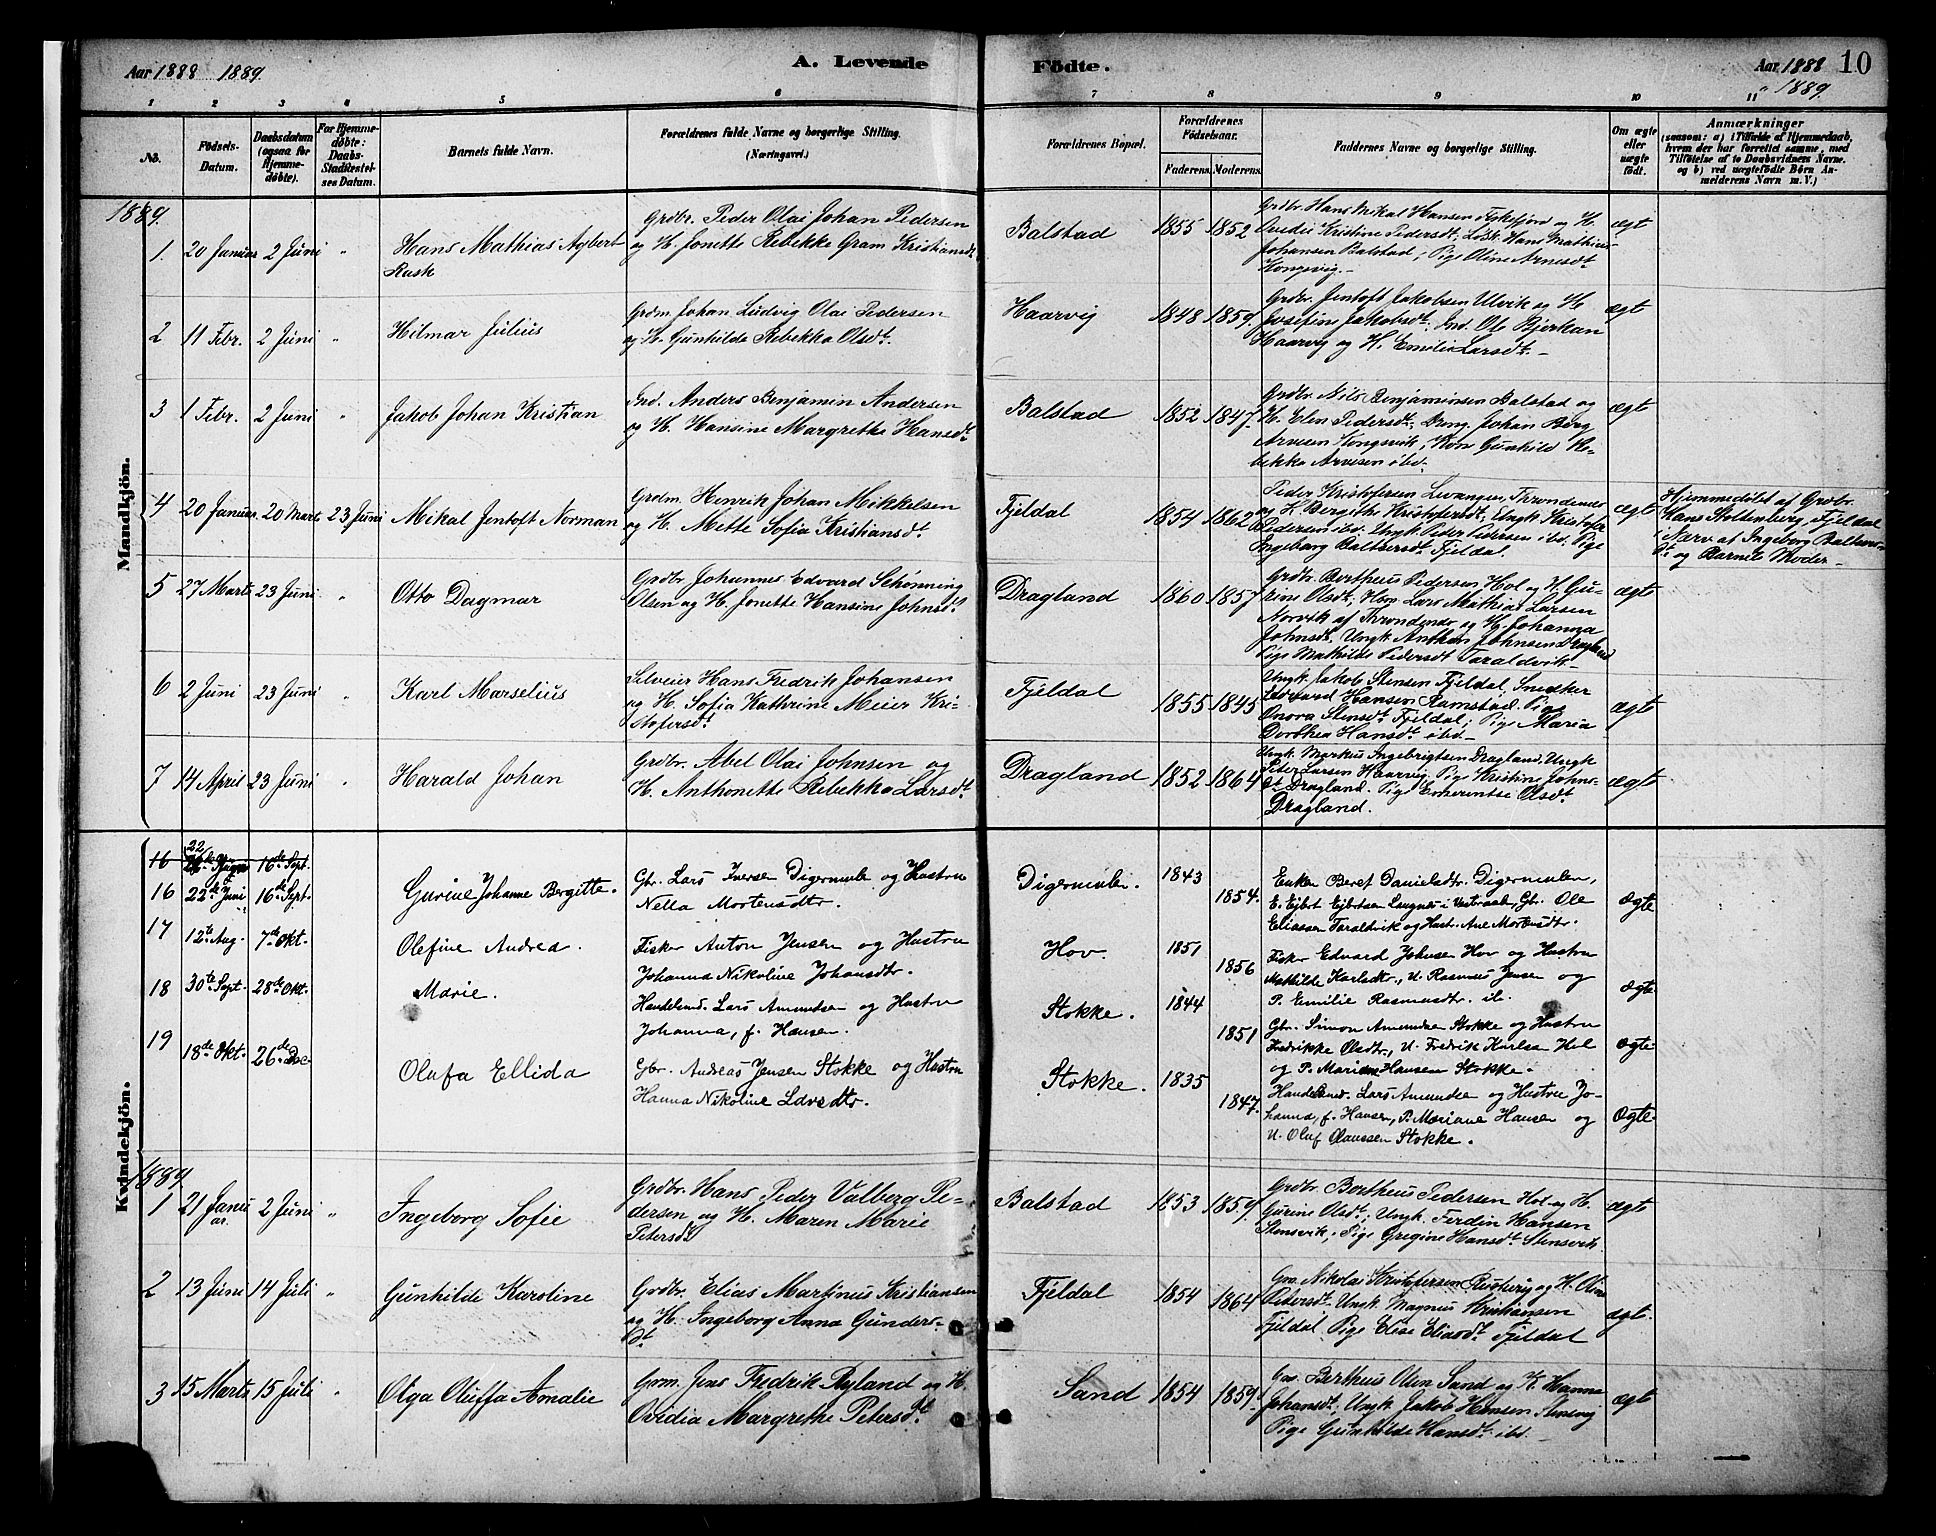 Aar 1888 1889.
A. Levende Födte.
Aar 1888 10
" 1889.
1 2 3 4 5 6 7 8 9 10 11
No.
Födsels-Datum.
Daabsdatum (ogsaa for Hjemmedöbte).
For Hjemmedöbte: Daabs-Stadfæstelses Datum.
Barnets fulde Navn.
Forældrenes fulde Navne og borgerlige Stilling. (Næringsvei.)
Forældrenes Bopæl.
Forældrenes Födselsaar.
Faderens. Moderens.
Faddernes Navne og borgerlige Stilling.
Om ægte eller uægte födt.
Anmærkninger
(saasom: a) i Tilfælde af Hjemmedaab, hvem der har forrettet samme, med Tilföielse af to Daabsvidners Navne. og b) ved uægtefödte Börn Anmelderens Navn m. V.)
Mandkjön.
1889.
1 20 Januar 2 Juni " Hans Mathias Agbert Rask
Grdbr. Peder Olai Johan Pedersen
og H. Jonette Rebekke Gram Kristiansdt.
Balstad 1855 1852
Grdbr. Hans Mikal Hansen Fiskefjord og H.
Ovedie Kristine Pedersdt; Løsk. Hans Mathias
Johansen Balstad; Pige Oline Arnesdt
Kongsvig.-
ægt
2 11 Febr. 2 Juni " Hilmar Julius
Grdm. Johan Ludvig Olai Pedersen
og H. Gunhilde Rebekka Olsdt.
Haarvig 1848 1859
Grdbr. Jentoft Jakobsen Ulvik og H.
Josefine Jakobsdt. Ind. Ole Bjerkan
Haarvig og H. Emilie Larsdt.-
ægt
3 1 Febr. 2 Juni " Jakob Johan Kristian
Ind. Anders Benjamin Andersen
og H. Hansine Margrethe Hansdt.
Balstad 1852 1847.
Grdbr. Nils Benjaminsen Balstad og
H. Elen Pedersdt; Dreng Johan Berg
Arvesen Kongsvik; Kon Gunhild Re-
bekka Arvesen ibd.
ægt
4 20 Januar. 20 Marts 23 Juni Mikal Jentoft Norman
Grdm. Henrik Johan Mikkelsen
og H. Mette Sofia Kristiansdt.
Fjeldal 1854 1862
Peder Kristofersen Levangen, Throndenes
og H. Bergithe Kristofersdt; Ungk. Kristofer
Pedersen ibd. Ungk. Peder Pedersen ibd. Pige
Ingeborg Baltsersdt. Fjeldal.
ægt
Hjemmedøbt af Grdbr.
Hans Stoltenberg, Fjeldal
Nærv. af Ingeborg Baltsers-
dt og Barnets Moder.-
5 27 Marts 23 Juni " Otto Dagmar
Grdbr. Johannes Edvard Schønning
Olsen og H. Jonette Hansine Johnsdt.
Dragland 1860 1857
Grdbr. Bertheus Pedersen Hol og H. Gu-
rine Olsdt; Lars Mathias Larsen
Norvik af Throndenes og H. Johanna
Johnsdt, Ungk. Anthon Johnsen Dragland
Pige Mathilde Pedersdt Taraldvik
ægt
6 2 Juni 23 Juni " Karl Marselius
Selveier Hans Fredrik Johansen
og H. Sofia Kathrine Meier Kri-
stofersdt.
Fjeldal 1855 1845
Ungk. Jakob Stensen Fjeldal, Snedker
Edvard Hansen Ramstad. Pige
Onora Stensdt. Fjeldal; Pige Maria
Dorthea Hansdt. ibd.-
ægt
7 14 April 23 Juni " Harald Johan
Grdbr. Abel Olai Johnsen og
H. Anthonette Rebekka Larsdt.
Dragland 1852 1864
Ungk. Markus Ingebrigtsen Dragland, Ungk
Peter Larsen Haarvig, Pige Kristine Johns-
dt Dragland. Pige Emerentse Olsdt.
Dragland.
ægt
Kvindekjön.
16 22 16de Sept.
16 22de Juni 16de Sept. Gurine Johanne Bergitte.
Gbr. Lars Iversen Digermulen og Hustru
Nella Mortensdtr.
Digermulen. 1843 1854.
Enken Beret Danielsdtr. Digermulen,
E. Ejbrt Ejbrtsen Langnes i Vestraal, Gbr. Ole
Eliassen Taraldvik og Hust. Ane Mortensdtr.
ægte
17 12te Aug. 7de Okt. Olefine Andrea.
Fisker Anton Jensen og Hustru
Johanna Nikoline Johansdtr.
Hov. 1851 1856
Fisker Edvard Johnsen Hov og Hustru
Mathilde Karlsdtr., U. Rasmus Jensen og
P. Emilie Rasmusdtr. ib.
ægte
18 30te Sept. 28de Okt. Marie.
Handelsmd. Lars Amundsen og Hustru
Johanna, f. Hansen.
Stokke. 1844 1851
Gbr. Simon Amundsen Stokke og Hustru
Fredrikke Olsdtr., U. Fredrik Karlsen Hol
og P. Mariane Hansen Stokke.
ægte
19 18de Okt. 26de Dec. Olufa Ellida
Gbr. Andreas Jensen Stokke og Hustru
Hanna Nikoline Larsdtr.
Stokke. 1835 1847.
Handelsmd. Lars Amundsen og Hustru Jo-
hanna, f. Hansen, P. Mariane Hansen og
U. Oluf Olaussen Stokke.
ægte
1889
1 21 Januar. 2 Juni " Ingeborg Sofie
Grdbr. Hans Peder Valberg Pe-
dersen og H. Maren Marie
Petersdt
Balstad 1853 1859.
Grdbr. Bertheus Pedersen Hol og H.
Gurine Olsdt; Ungk. Ferdin Hansen
Stensvik; Pige Gregine Hansdt. Stensvik
ægt
2 13 Juni 14 Juli " Gunhilde Karoline
Grdbr. Elias Martinus Kristiansen
og H. Ingeborg Anna Gunders-
dt
Fjeldal 1854 1864
Nikolai Kristofersen og H.
Pedersdt. Ungk. Magnus Kristiansen
Fjeldal. Pige Elise Eliasdt. Fjeldal
ægt.
3 15 Marts 15 Juli " Olga Oluffa Amalie
Grm. Jens Fredrik Ryland og H.
Ovidia Margrethe Petersdt.
Sand 1854 1859.
Bertheus Olsen Sand og H. Hanna
Johansdt; Ungk. Jakob Hansen Stensvig
Pige Gunhilde Hansdt. ibd.-
ægt